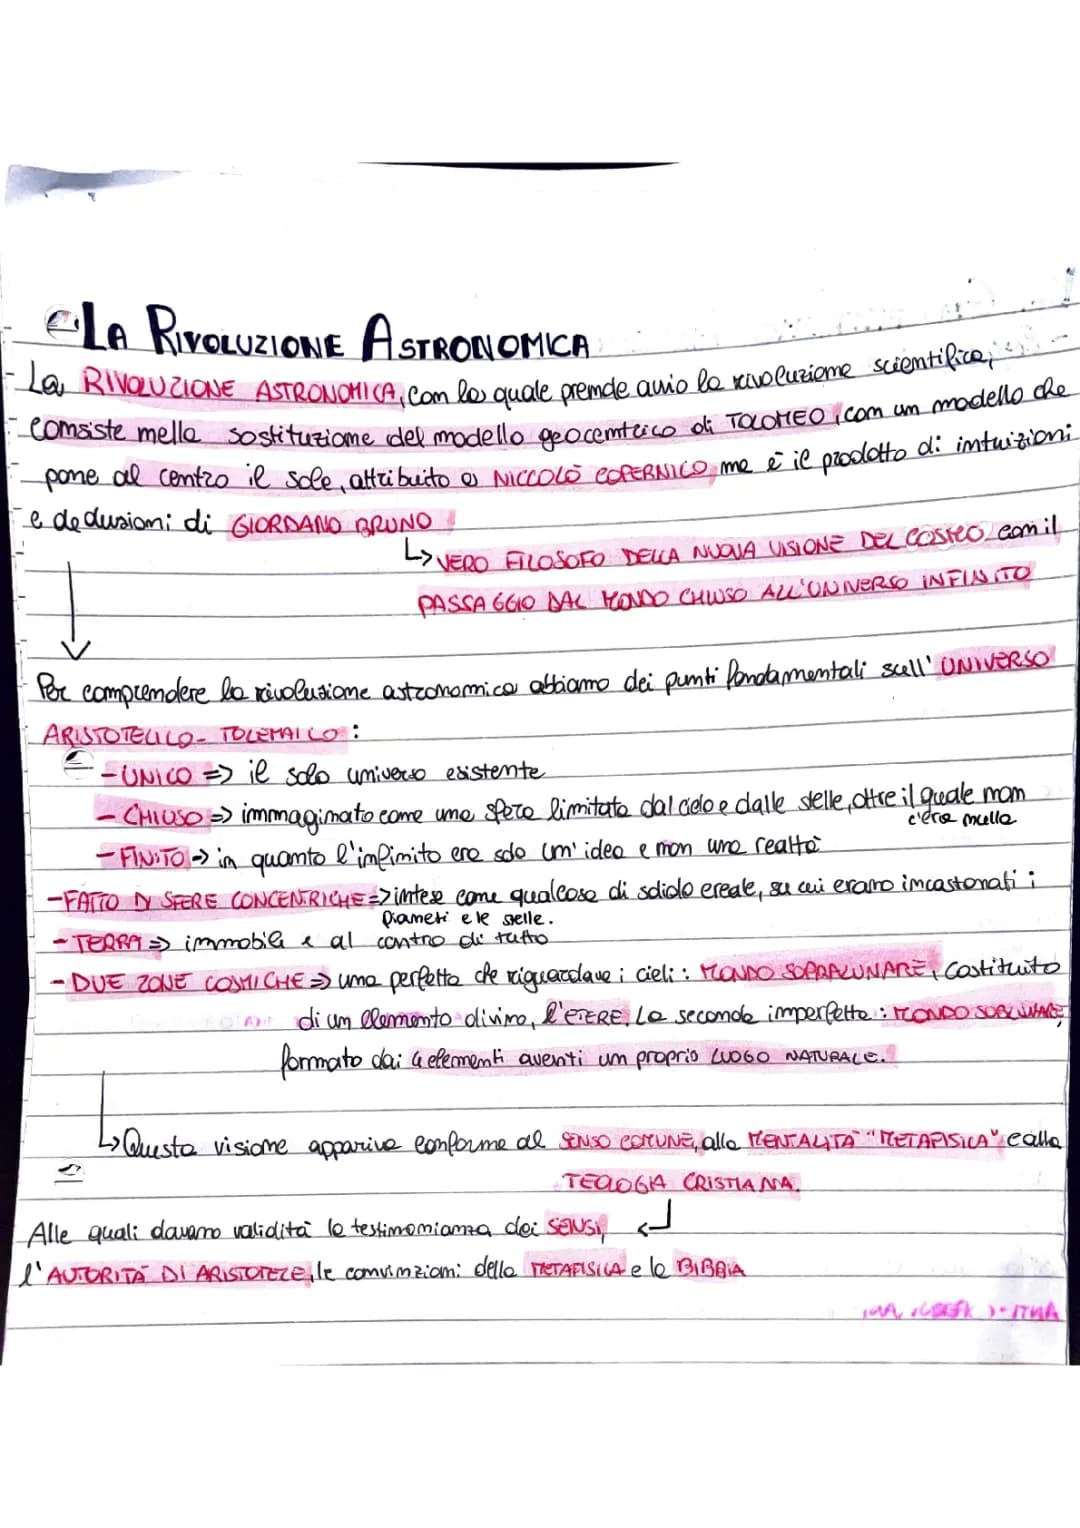 LA RIVOLUZIONE ASTRONOMICA
- La RIVOLUZIONE ASTRONOMICA, con la quale prende avvio la rivoluzione scientifica,
consiste nella sostituzione del modello geocentrico di TOLOMEO, con un modello che
pone al centro il sole, attribuito a NICCOLÒ COPERNICO, ma è il prodotto di intuizioni
e deduzioni di GIORDANO BRUNO
↳ VERO FILOSOFO DELLA NUOVA VISIONE DEL COSMO con il
PASSAGGIO DAL MONDO CHIUSO ALL'UNIVERSO INFINITO
Per comprendere la rivoluzione astronomica abbiamo dei punti fondamentali sull'UNIVERSO
ARISTOTELICO- TOLEMAICO :
- UNICO => il solo universo esistente
- CHIUSO => immaginato come una sfera limitata dal cielo e dalle stelle, oltre il quale non
c'era nulla
- FINITO -> in quanto l'infinito era solo un'idea e non una realtà
- FATTO DI SFERE CONCENTRICHE => intese come qualcosa di solido e reale, su cui erano incastonati i
Pianeti e le stelle.
- TERRA => immobile e al centro di tutto
- DUE ZONE COSMICHE => una perfetta che riguardava i cieli : MONDO SOPRALUNARE, Costituito
di un elemento divino, l'ETERE. La seconda imperfetta : MONDO SUBLUNARE,
formato dai 4 elementi aventi un proprio LUOGO NATURALE.
↳ Questa visione appariva conforme al SENSO COMUNE, alla MENTALITÀ "METAFISICA" e alla
TEOLOGIA CRISTIANA.
Alle quali davano validità la testimonianza dei SENSI,
l'AUTORITÀ DI ARISTOTELE, le convinzioni della METAFISICA e la BIBBIA